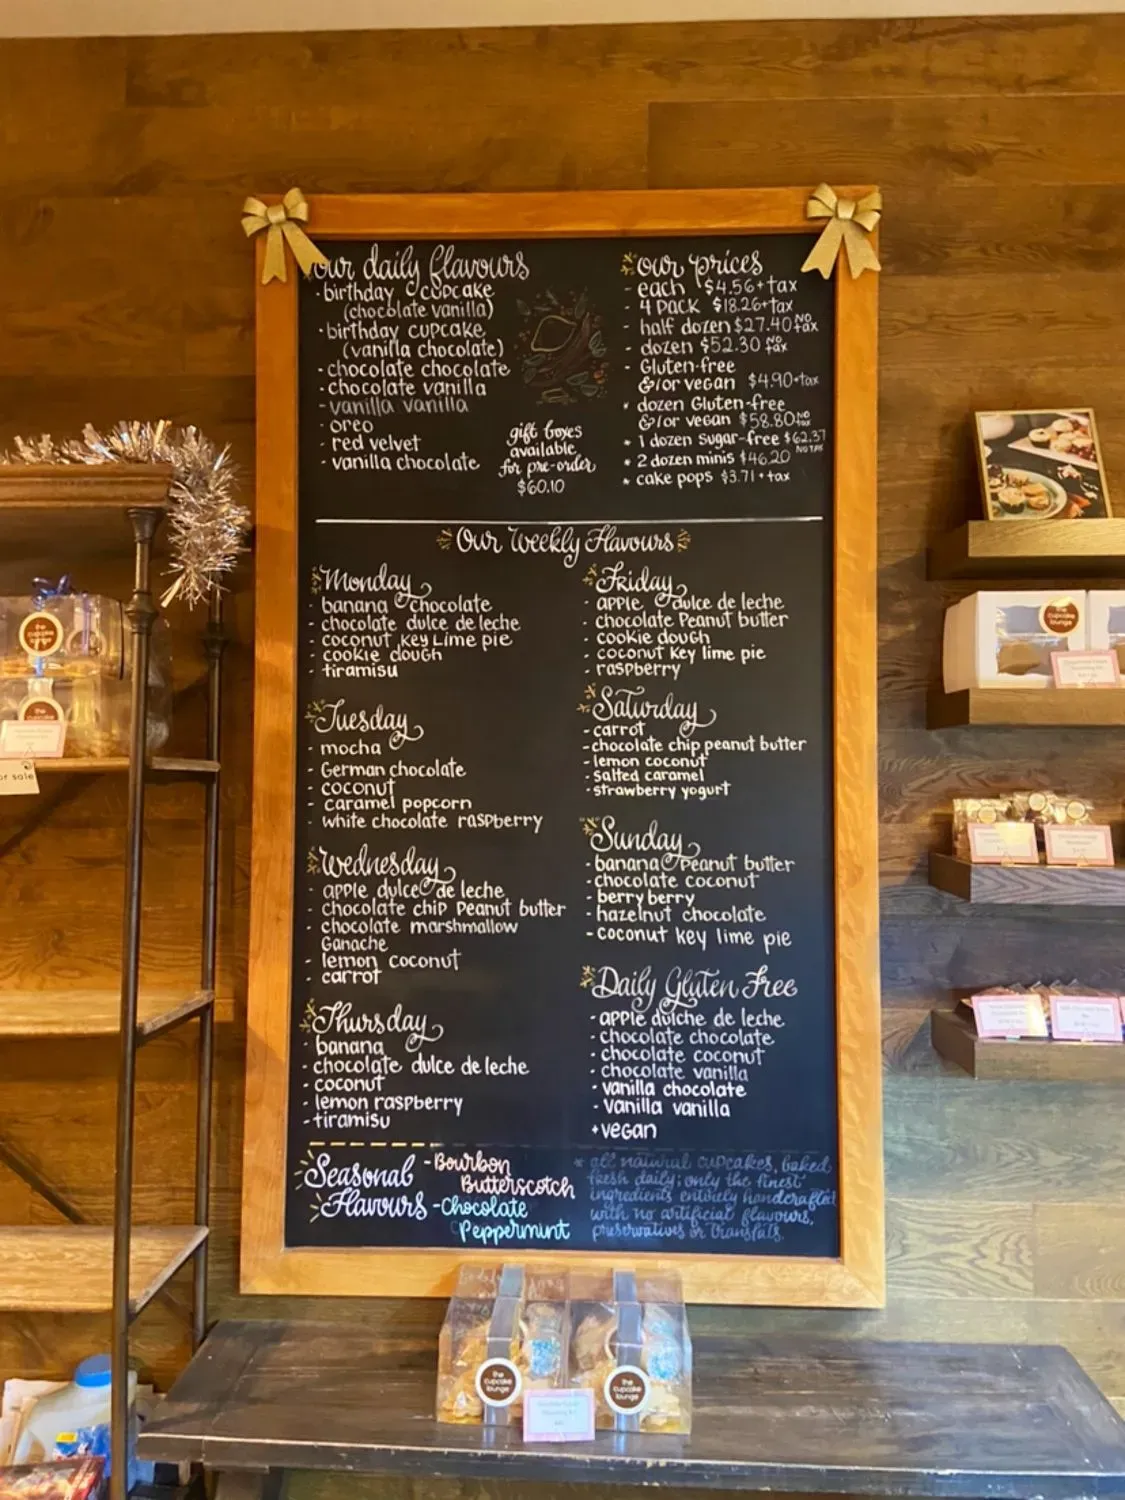 our daily flavours
· birthday cupcake
(chocolate vanilla)
· birthday cupcake
(vanilla chocolate)
· chocolate chocolate
· chocolate vanilla
- vanilla vanilla
- oreo
- red velvet
- vanilla chocolate
gift boxes
available
for pre-order
$60.10
our prices
- each $4.56+tax
- 4 PACK $18.26+tax
- half dozen $27.40 NO tax
- dozen $52.30 NO tax
- Gluten-free
&/or vegan $4.90+tax
* dozen Gluten-free
&/or vegan $58.80 NO tax
* 1 dozen sugar-free $62.37
NO TAX
* 2 dozen minis $46.20
* cake pops $3.71+tax
Our Weekly Flavours
Monday
- banana chocolate
- chocolate dulce de leche
- coconut key Lime pie
- cookie dough
- tiramisu
Tuesday
- mocha
- German chocolate
- coconut
- caramel popcorn
- white chocolate raspberry
Wednesday
- apple dulce de leche
- chocolate chip Peanut butter
- chocolate marshmallow
Ganache
- lemon coconut
- carrot
Thursday
- banana
- chocolate dulce de leche
- coconut
- lemon raspberry
- tiramisu
Friday
- apple dulce de leche
- chocolate Peanut butter
- cookie dough
- coconut key lime pie
- raspberry
Saturday
- carrot
- chocolate chip peanut butter
- lemon coconut
- salted caramel
- strawberry yogurt
Sunday
- banana Peanut butter
- chocolate coconut
- berry berry
- hazelnut chocolate
- coconut key lime pie
Daily Gluten Free
- apple dulche de leche
- chocolate chocolate
- chocolate coconut
- chocolate vanilla
- vanilla chocolate
- vanilla vanilla
+ vegan
Seasonal
Flavours
- Bourbon
Butterscotch
- Chocolate
Peppermint
* all natural cupcakes, baked
fresh daily; only the finest
ingredients entirely handcrafted
with no artificial flavours,
preservatives or transfats.
the
cupcake
lounge
the
cupcake
lounge
the
cupcake
lounge
the
cupcake
lounge
or sale